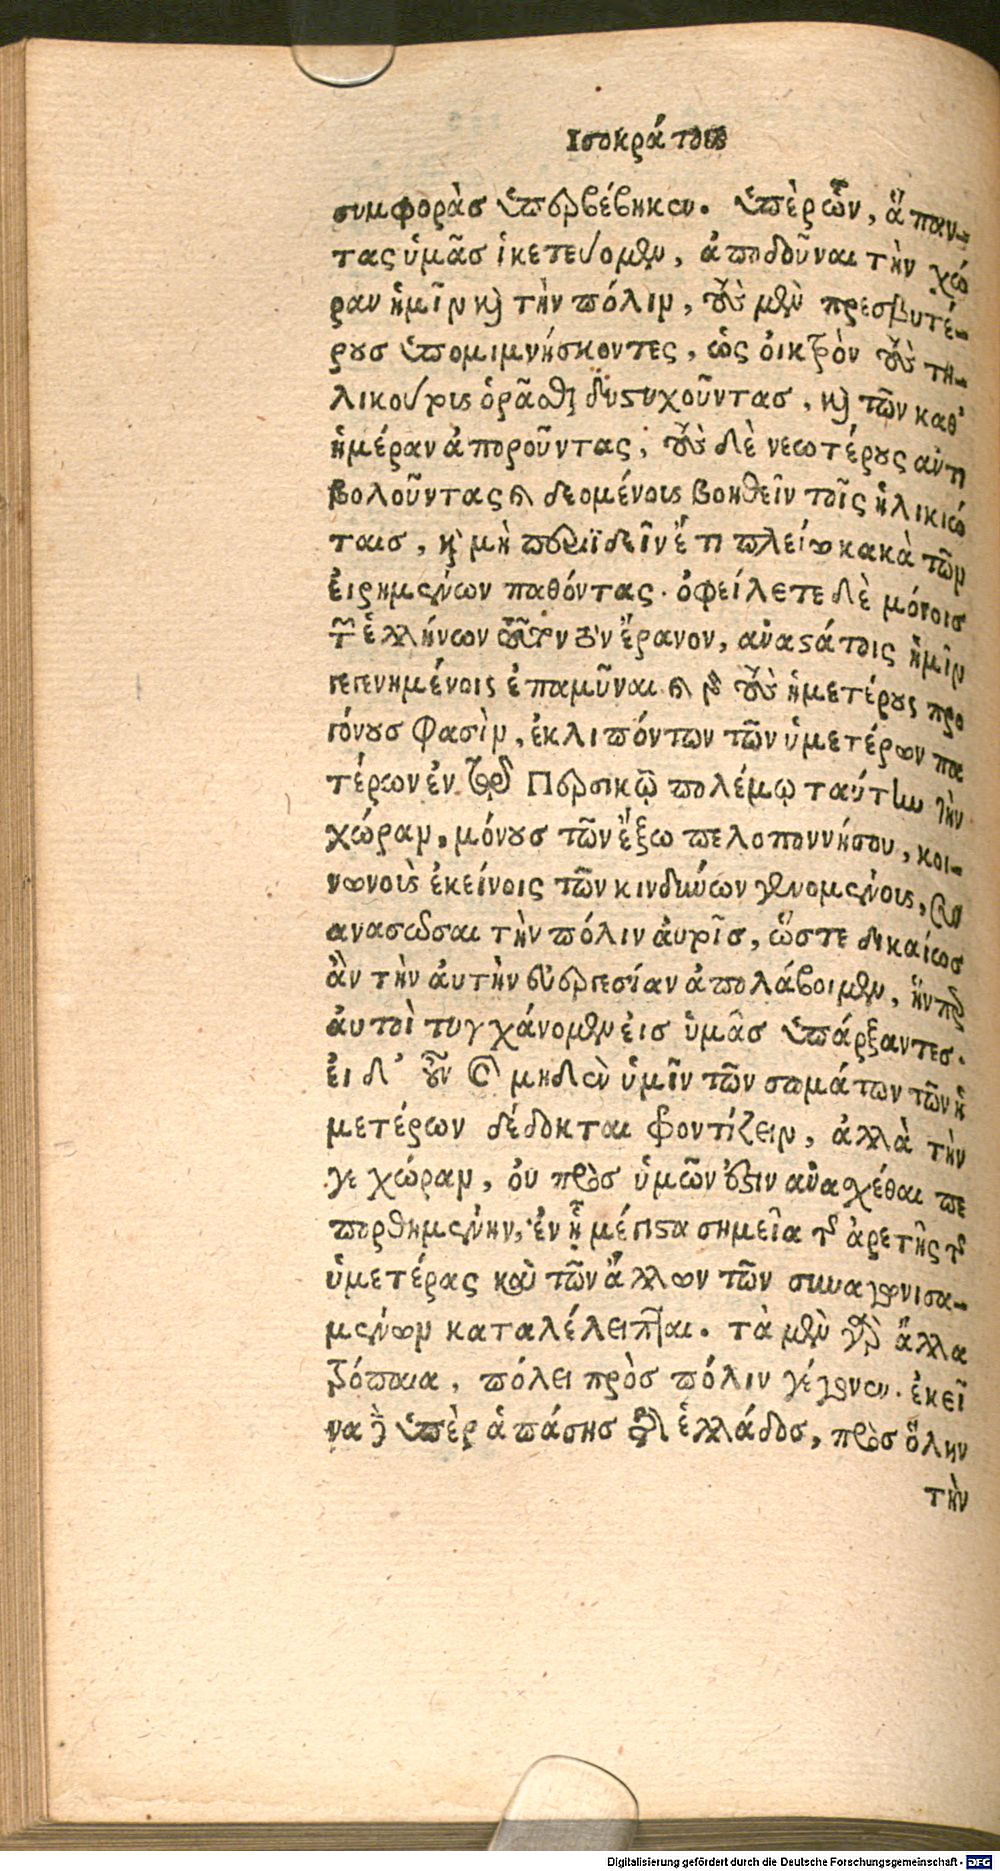 Ισοκράτους
συμφορὰσ ὑπερβέβηκεν. ὑπὲρ ὧν, ἅπαν-
τας ὑμᾶσ ἱκετεύομεν, ἀποδοῦναι τὴν χώ
ραν ἡμῖν καὶ τὴν πόλιν, τοὺς μὲν πρεσβυτέ-
ρουσ ὑπομιμνήσκοντες, ὡς οἰκτρὸν τοὺς τη-
λικούτους ὁρᾶσθαι δυστυχοῦντασ, καὶ τῶν καθ'
ἡμέραν ἀποροῦντας, τοὺς δὲ νεωτέρους ἀντι
βολοῦντας καὶ δεομένους βοηθεῖν τοῖς ἡλικιώ
ταισ, καὶ μὴ περιϊδεῖν ἔτι πλείω κακὰ τῶν
εἰρημένων παθόντας. ὀφείλετε δὲ μόνοισ
τῶν ἑλλήνων τοῦτον τὸν ἔρανον, ἀναστάτοις ἡμῖν
γεγενημένοις ἐπαμῦναι καὶ γὰρ τοὺς ἡμετέρους προ
γόνουσ φασὶν, ἐκλιπόντων τῶν ὑμετέρων πα
τέρων ἐν τῷ Περσικῷ πολέμῳ ταύτην τὴν
χώραν, μόνουσ τῶν ἔξω πελοποννήσου, κοι-
νωνοὺς ἐκείνοις τῶν κινδύνων γενομένους, συν
ανασῶσαι τὴν πόλιν ἀυτοῖσ, ὥστε δικαίωσ
ἂν τὴν ἀυτὴν εὐεργεσίαν ἀπολάβοιμεν, ἥνπερ
ἀυτοὶ τυγχάνομεν ἐισ ὑμᾶσ ὑπάρξαντεσ.
ἐι δ' οὖν καὶ μηδὲν ὑμῖν τῶν σωμάτων τῶν ἡ
μετέρων δέδοκται φροντίζειν, ἀλλὰ τὴν
γε χώραν, ὀυ πρὸσ ὑμῶν ἐστιν ἀνασχέσθαι πε
πορθημένην, ἐν ᾗ μέγιστα σημεῖα τῆς ἀρετῆς τῆς
ὑμετέρας καὶ τῶν ἄλλων τῶν συναγωνισα-
μένων καταλέλειπται. τὰ μὲν γὰρ ἄλλα
τρόπαια, πόλει πρὸσ πόλιν γέγονεν. ἐκεῖ
να δὲ ὑπὲρ ἁπάσησ τῆς ἑλλάδοσ, πρὸσ ὅλην
τὴν
Digitalisierung gefördert durch die Deutsche Forschungsgemeinschaft - DFG